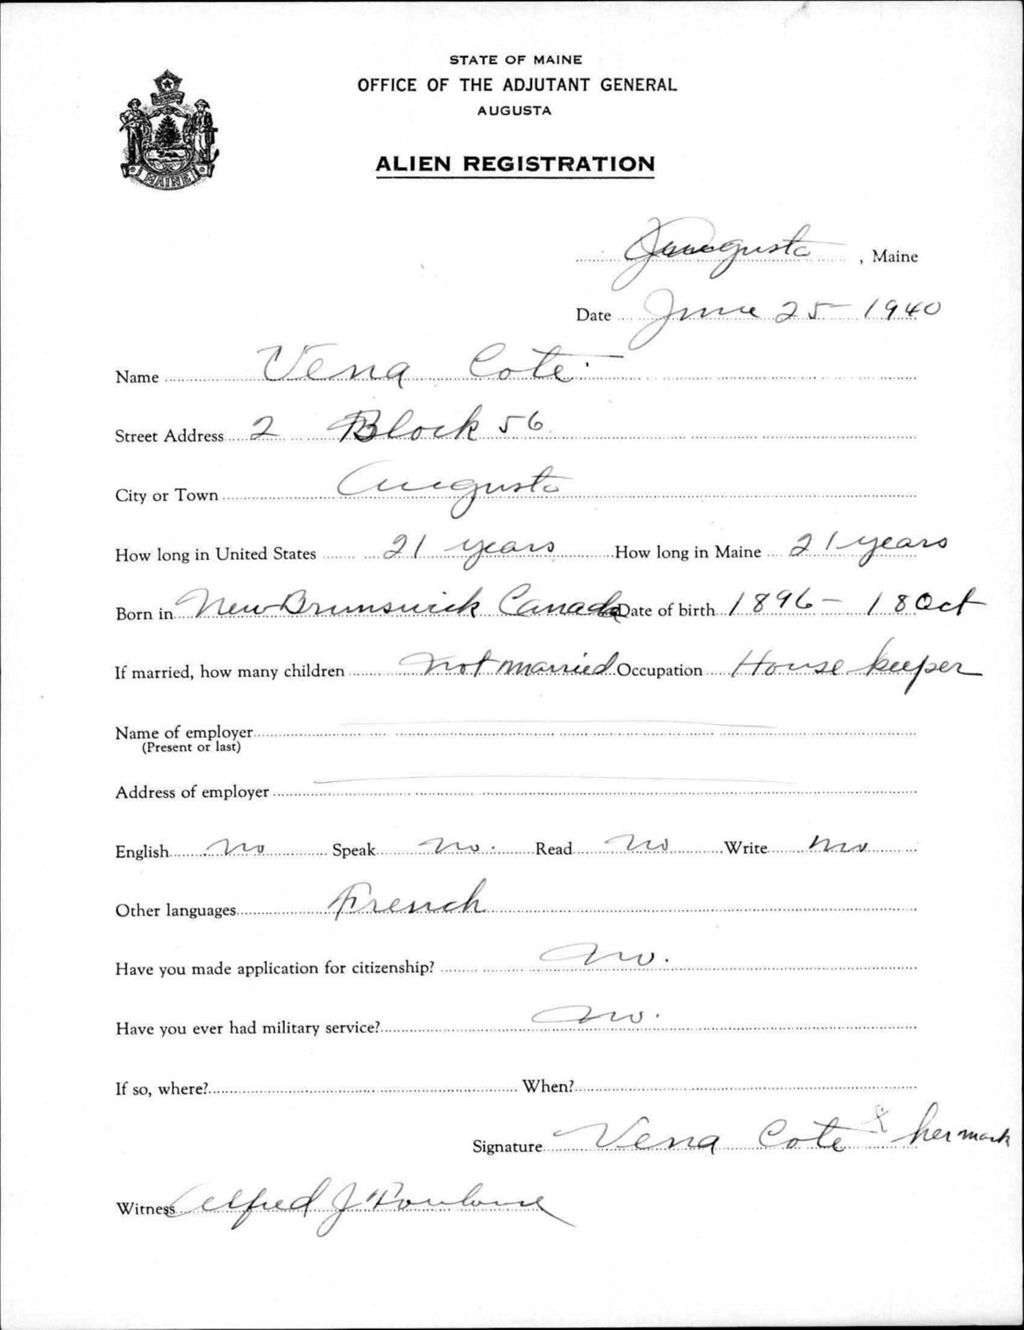 STATE OF MAINE
OFFICE OF THE ADJUTANT GENERAL
AUGUSTA
ALIEN REGISTRATION
MAINE
Augusta, Maine
Date June 25 - 1940
Name Vena Cote
Street Address 2 Block 56
City or Town Augusta
How long in United States 21 years How long in Maine 21 years
Born in New Brunswick Canada Date of birth 1896 - 18 Oct
If married, how many children not married Occupation House keeper
Name of employer
(Present or last)
Address of employer
English no Speak no. Read no Write no
Other languages French
Have you made application for citizenship? no.
Have you ever had military service? no.
If so, where? When?
Signature Vena Cote X her mark
Witness Alfred J